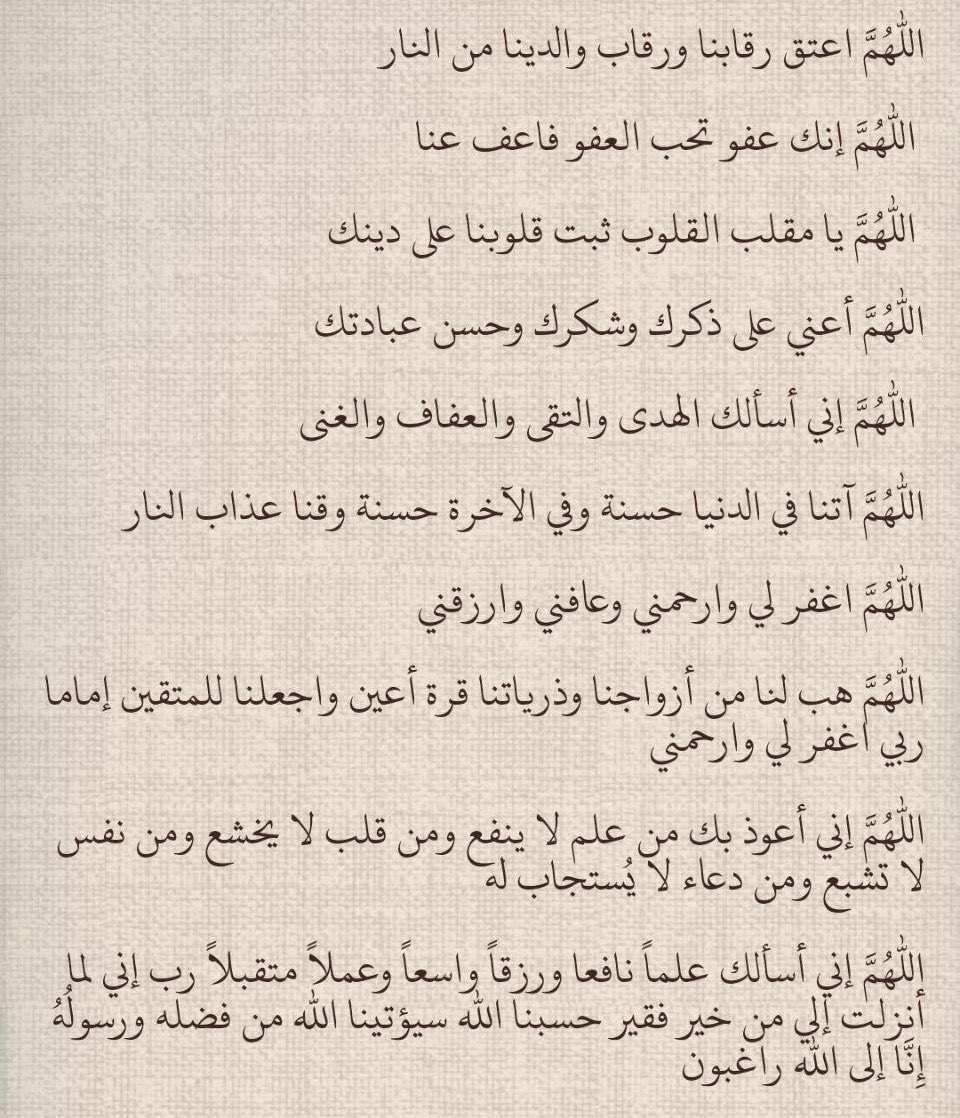 اللَّهُمَّ اعتق رقابنا ورقاب والدينا من النار
اللَّهُمَّ إنك عفو تحب العفو فاعف عنا
اللَّهُمَّ يا مقلب القلوب ثبت قلوبنا على دينك
اللَّهُمَّ أعني على ذكرك وشكرك وحسن عبادتك
اللَّهُمَّ إني أسألك الهدى والتقى والعفاف والغنى
اللَّهُمَّ آتنا في الدنيا حسنة وفي الآخرة حسنة وقنا عذاب النار
اللَّهُمَّ اغفر لي وارحمني وعافني وارزقني
اللَّهُمَّ هب لنا من أزواجنا وذرياتنا قرة أعين واجعلنا للمتقين إماما
ربي اغفر لي وارحمني
اللَّهُمَّ إني أعوذ بك من علم لا ينفع ومن قلب لا يخشع ومن نفس
لا تشبع ومن دعاء لا يُستجاب له
اللَّهُمَّ إني أسألك علماً نافعا ورزقاً واسعاً وعملاً متقبلاً رب إني لما
أنزلت إلي من خير فقير حسبنا الله سيؤتينا الله من فضله ورسولُهُ
إِنَّا إلى الله راغبون